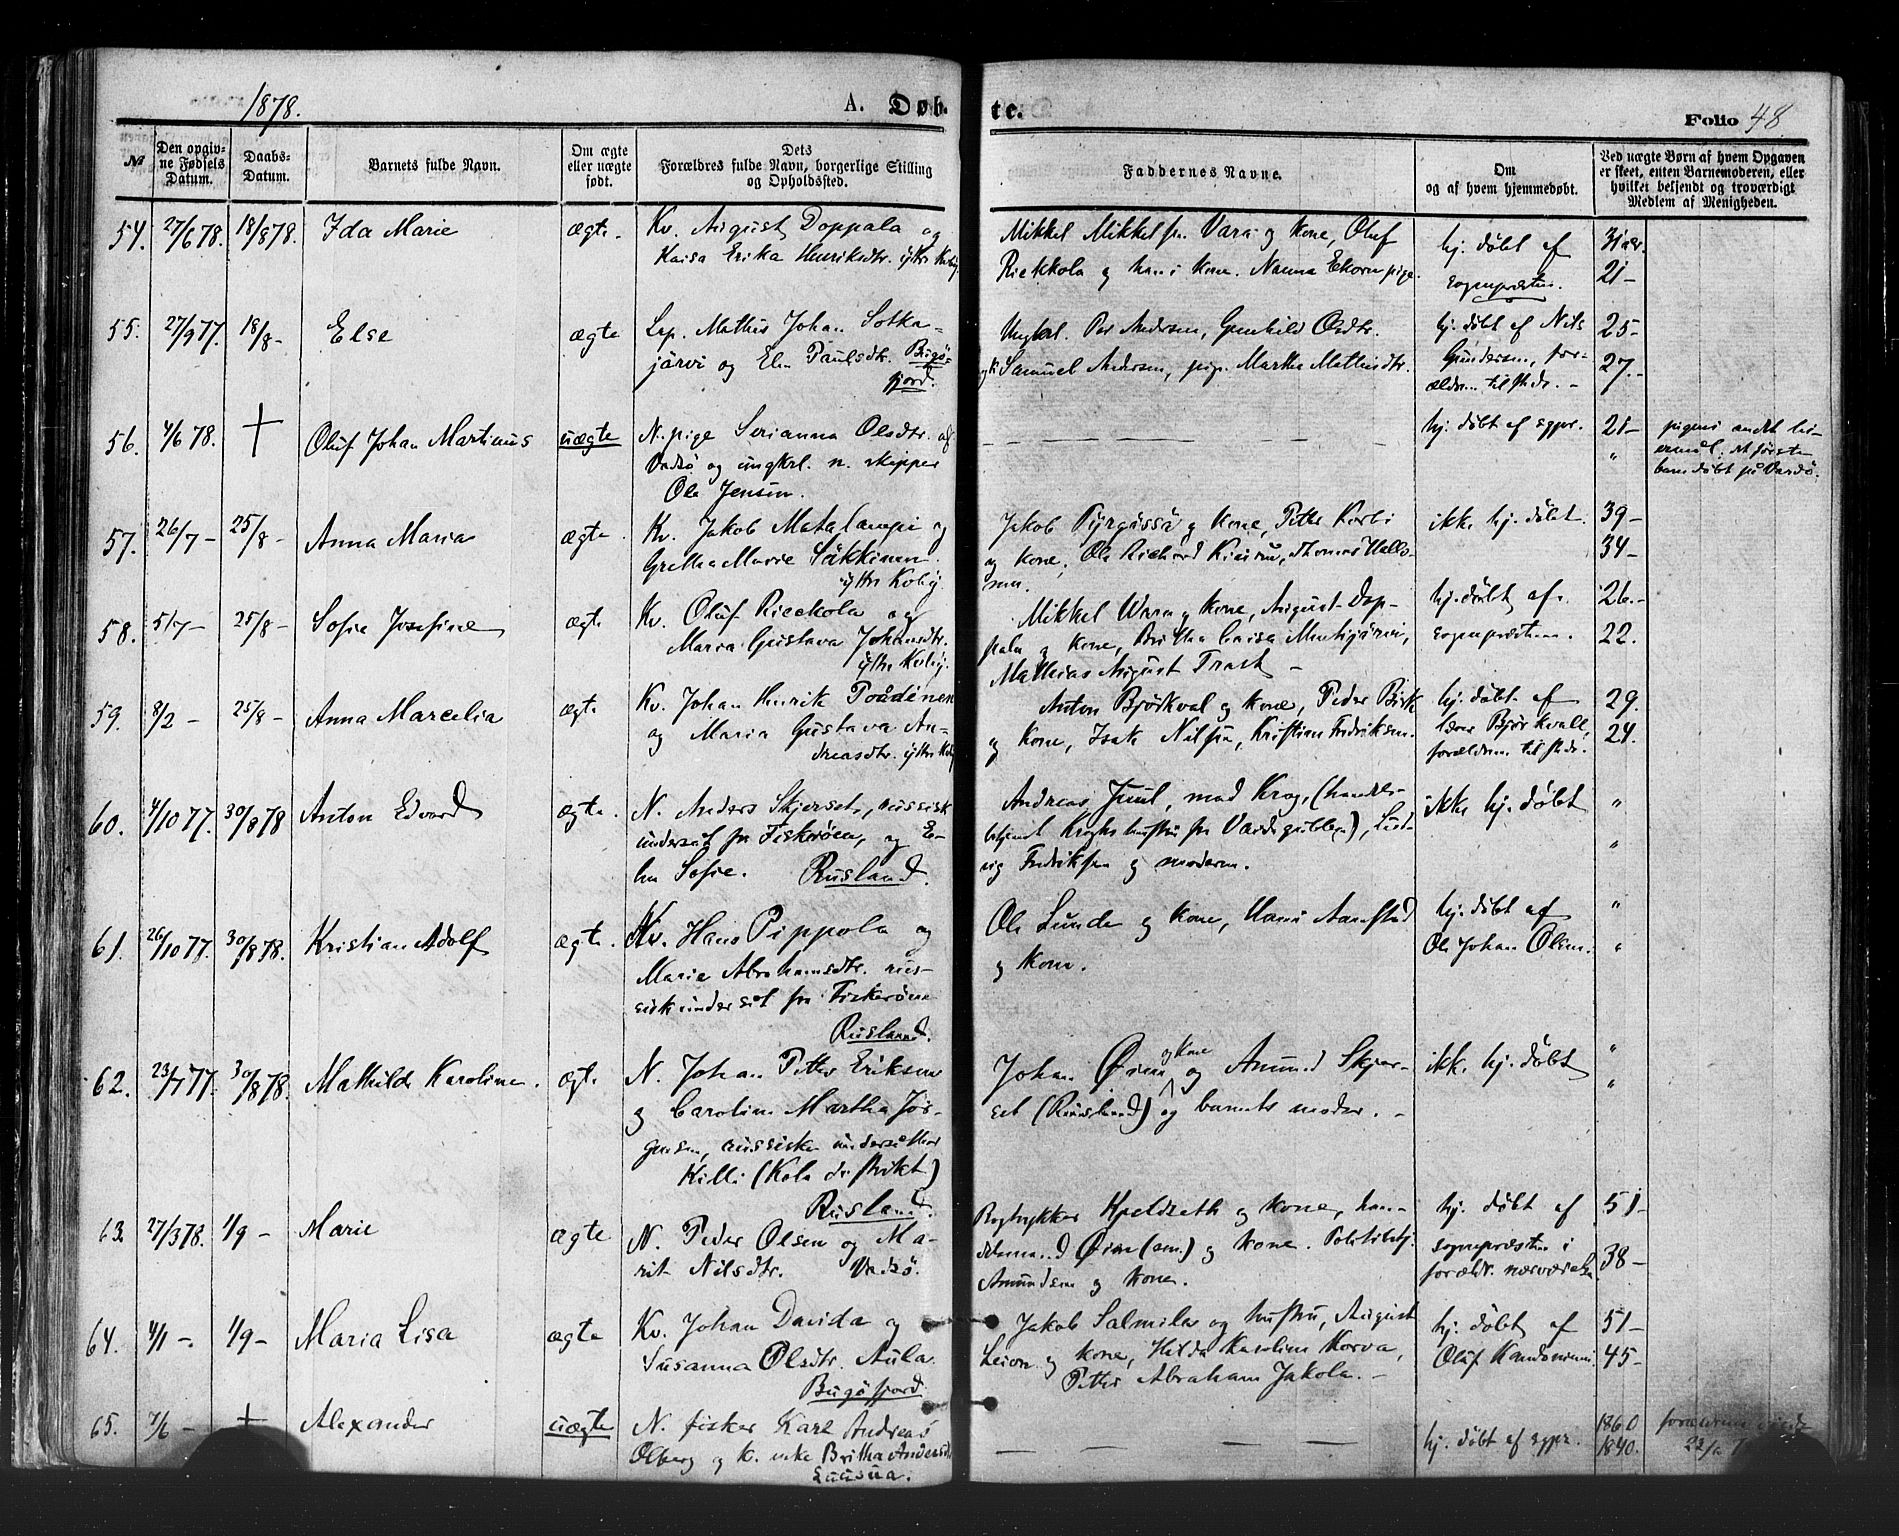 1878.
A. Døb-
te.
Folio 48.
№
Den opgiv-
ne Fødsels
Datum.
Daabs-
Datum.
Barnets fulde Navn.
Om ægte
eller uægte
født.
Dets
Forældres fulde Navn, borgerlige Stilling
og Opholdssted.
Faddernes Navne.
Om
og af hvem hjemmedøbt.
Ved uægte Børn af hvem Opgaven
er skeet, enten Barnemoderen, eller
hvilket bekjendt og troværdigt
Medlem af Menigheden.
54. 27/6 78. 18/8 78. Ida Marie ægte.
Kv. August Doppala og
Kaisa Erika Henriksdtr. ytre Kobg.
Mikkel Mikkelsen Vara og kone, Oluf
Rickkola og hans kone. Nanna Ekorn pige.
hj. døbt af
sognepræsten.
31 aar.
21 -
55. 27/9 77. 18/8 - Else ægte
Lap. Mathis Johan Sotka-
järvi og Elen Paulsdtr. Bugø-
fjord.
Ungkrl. Per Andersen, Gunhild Olsdtr.
Samuel Andersen, pige Marthe Mathisdtr.
hj. døbt af Nils
Gundersen, for-
ældrene tilstede. -
25 -
27. -
56. 4/6 78. + Oluf Johan Martinus uægte
N. pige Serianna Olsdtr. af
Vadsø og ungkrl. n. skipper
Ole Jensen.
hj. døbt af sgpr.
21 -
"
pigens andet lei-
ermål, det første
barn døbt på Vardø.
57. 26/7 - 25/8 - Anna Maria ægte.
Kv. Jakob Matalampi og
Gretha Marie Säkkinen.
ytre Kobg.
Jakob Pyrgissä og kone, Petter Korbi
og kone, Ole Richard , Thomas Halls-
sen.
ikke hj. døbt.
39 -
34 -
58. 5/7 - 25/8 - Sofie Josefine ægte
Kv. Oluf Rieckola og
Maria Gustava Johansdtr.
ytre Kobg.
Mikkel Wara og kone, August Dop-
pala og kone, Britha Caisa ,
Mathias August Trast -
hj. døbt af.
sognepræsten.
26. -
22.
59. 8/2 - 25/8 - Anna Marcelia ægte.
Kv. Johan Henrik Poådinen
og Maria Gustava An-
dreasdtr. ytre Kobg.
Anton Bjørkval og kone, Peder Birk
og kone, Isak Nilsen, Kristian Fredriksen.
hj. døbt af
lærer Bjørkvall,
forældrene tilstede.
29.
24.
60. 4/10 77. 30/8 78 Anton Edvard ægte.
N. Anders Skjerset, russisk
undersåt fra Fiskerøen, og E-
len Sofie. Rusland.
Andreas Juul, mad Krog, (handels-
betjent Kroghs hustru fra ), Lud-
vig Fredriksen og moderen.
ikke hj. døbt
"
"
61. 26/10 77. 30/8 78. Kristian Adolf ægte.
Kv. Hans Pippola og
Maria Abrahamsdtr. rus-
sisk undersåt fra Fiskerøen
Rusland.
Ole Lunde og kone, Hans Aamstad
og kone.
hj. døbt af
Ole Johan Olsen.
"
"
62. 23/7 77. 30/8 78. Mathilde Karoline. ægte.
N. Johan Petter Eriksen
og Caroline Martha Jør-
gensen, russiske undersåtter
Killi (Kola distrikt)
Rusland.
Johan Øien og kone og Amund Skjer-
set (Rusland) og barnets moder. -
ikke hj. døbt
"
"
63. 27/3 78. 1/9 - Marie ægte
N. Peder Olsen og Ma-
rit Nilsdtr. Vadsø.
Bogtrykker Kjeldseth og kone, han-
delsmand Øien (sen.) og kone. Politibetj.
Amundsen og kone.
hj. døbt af
sognepræsten i
forældr. nærværelse
51 -
38 -
64. 4/1 - 1/9 - Maria Lisa ægte
Kv. Johan Davida og
Susanna Olsdtr. Aula.
Bugøfjord.
Jakob Salmilas og hustru, August
Leion. og kone, Hilda Karolina Korva,
Petter Abraham Jakola. -
hj. døbt af
Oluf
51 -
45 -
65. 7/6 - + Alexander uægte
N. fisker Karl Andreas
Olberg og k. enke Britha Andersdtr.
Luusua.
hj. døbt af sgpr.
1860
1840.
forældrene viede